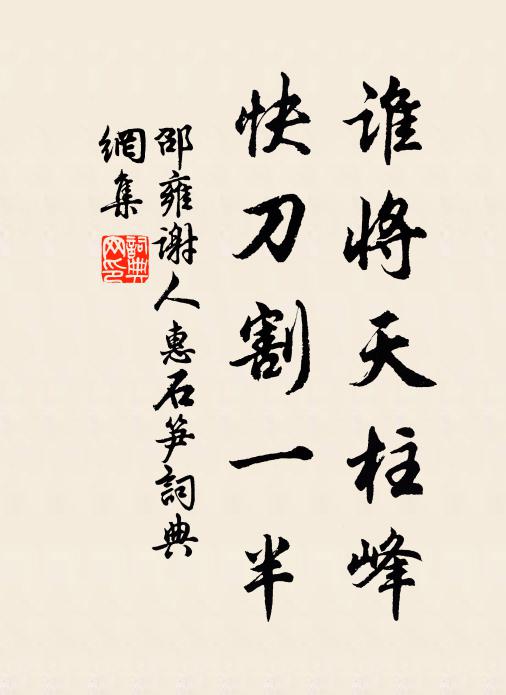 谁将天柱峰
快刀割一半
邵雍谢人惠石笋詞典
網集
詞典
网印